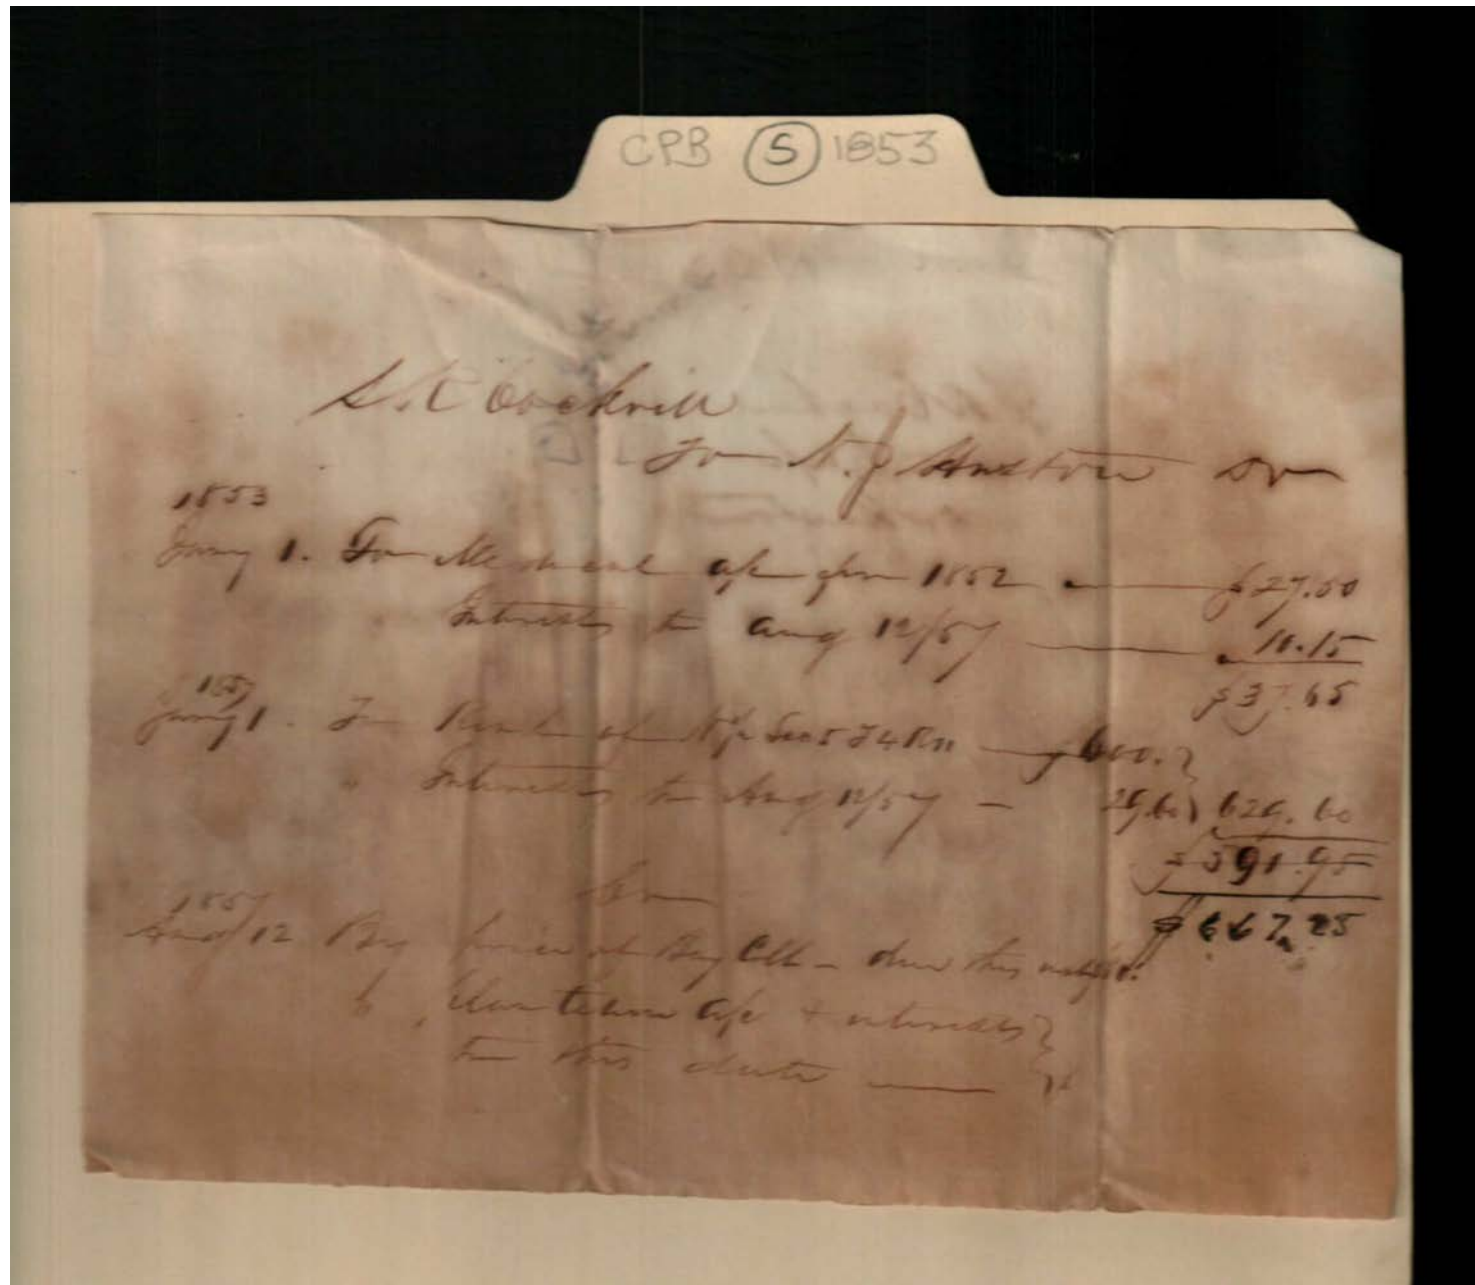 CPB (S) 1853
S. R Cockrill
To N. J Dr
1853
Jany 1. To Medical a/c for 1852 — $27.50
Interest to Aug 12/57 — 10.15
$37.65
1857
Jany 1. To Rent of Sec 5 T4 R11 — $600.
" Interest to Aug 12/57 — 29.60 629.60
$591.95
$667.25
Cr
1857
Aug 12 By of By — due this
" a/c + interest
to this date —